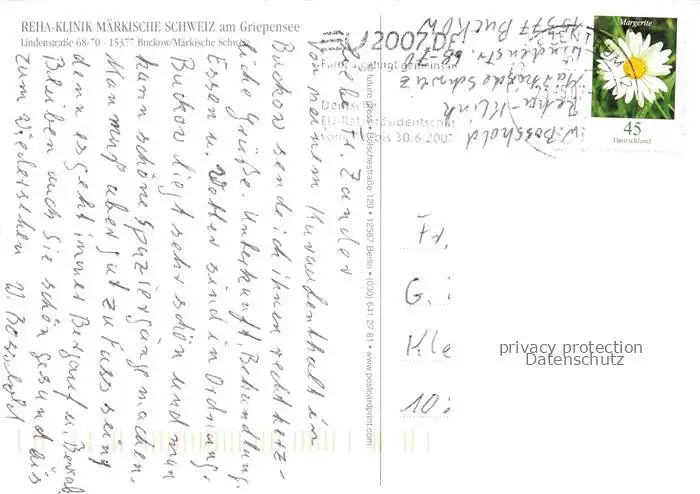 REHA-KLINIK MÄRKISCHE SCHWEIZ am Griepensee
Lindenstraße 68-70 · 15377 Buckow/Märkische Schweiz
Liebe Fr. Zander
Von meinem Kuraufenthalt in
Buckow sende ich ihnen recht herz-
liche Grüße. Unterkunft, Behandlung,
Essen u. Wetter sind in Ordnung.
Buckow liegt sehr schön und man
kann schöne Spaziergänge machen.
Man muß aber gut zu Fuss sein
denn es geht immer Bergauf u. Bergab.
Bleiben auch Sie schön gesund bis
zum Wiedersehen W. Bosshold
future press • Bölschestraße 129 • 12587 Berlin • (030) 641 27 81 • www.postcardprint.com
W. Bosshold
Reha-Klink
Märkische Schweiz
Lindenstr. 68-70
15377 Buckow
2007.DE
Europa gelingt gemeinsam
Deutsche
EU-Ratspräsidentschaft
bis 30.6.2007
Margerite
45
Deutschland
Fr.
G.
Kle
10
privacy protection
Datenschutz